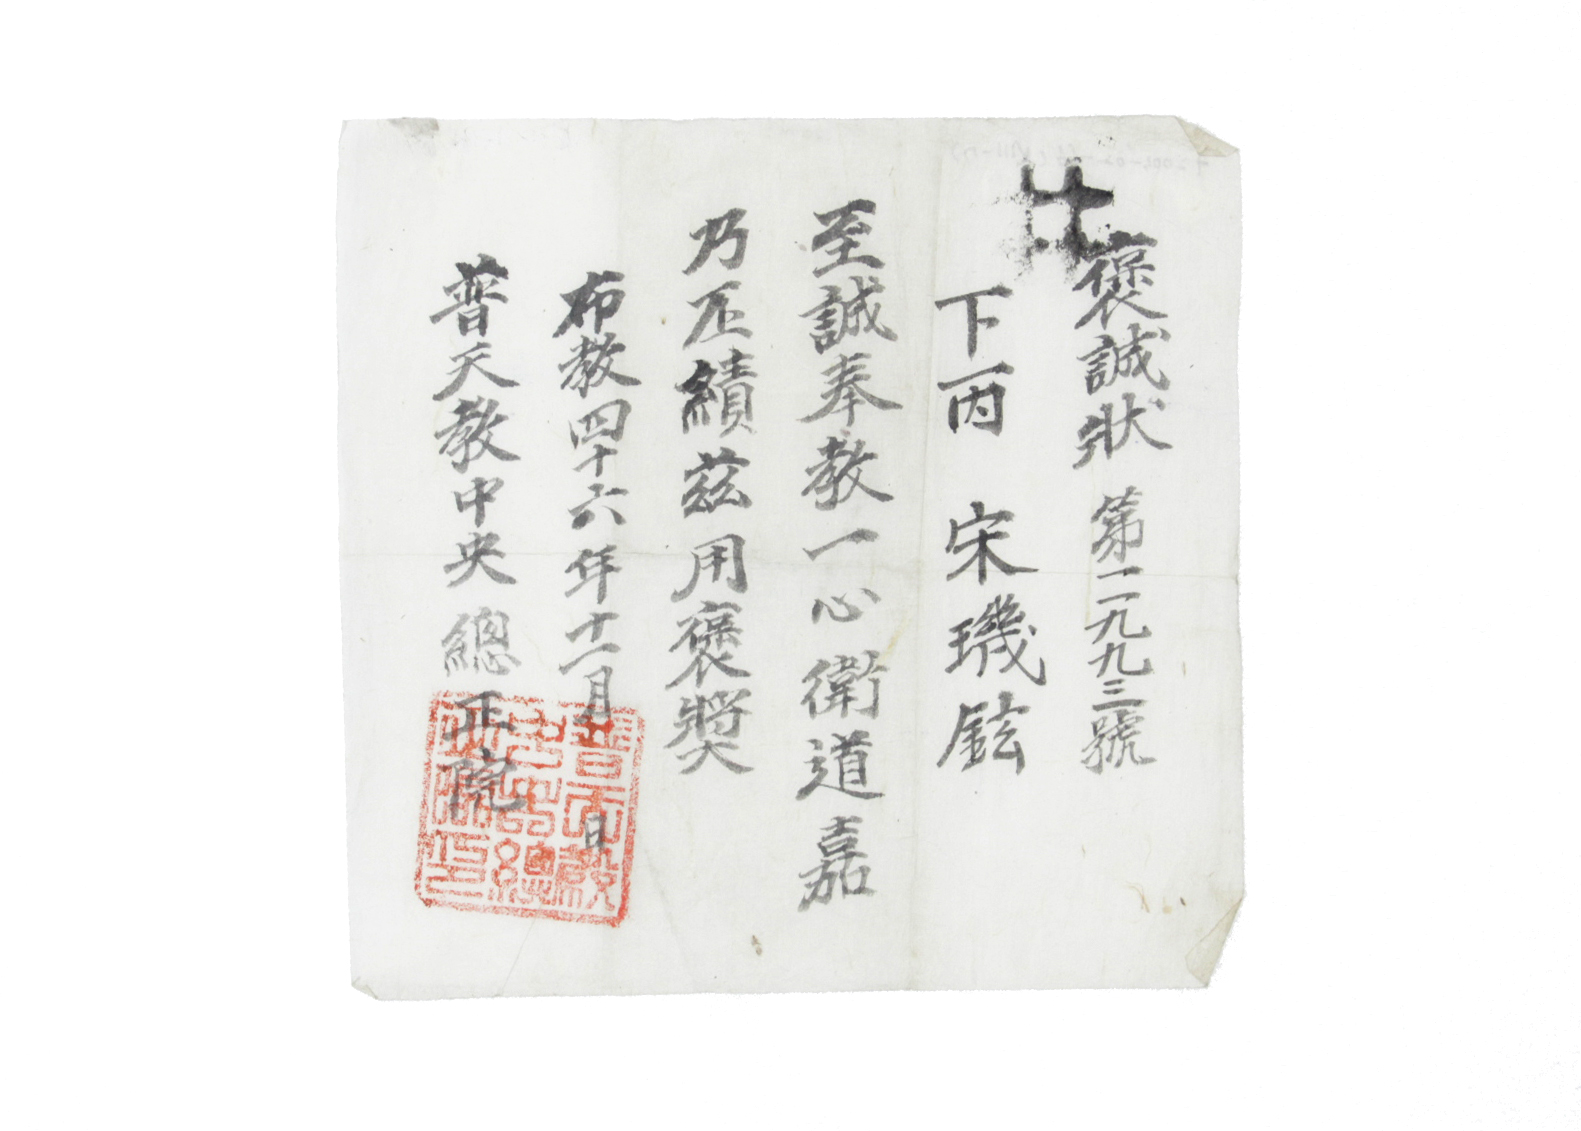 褒誠狀 第一一九九三號
下丙 宋璣鉉
至誠奉教一心衛道嘉
乃丕績茲用褒奬
布教四十六年十一月 日
普天教中央總正院
普天教
中央總
正院印